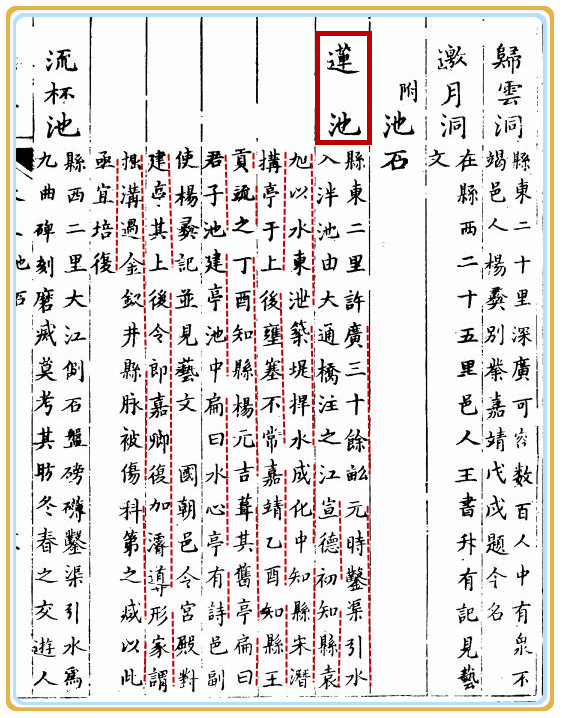 歸雲洞 縣東二十里深廣可容数百人中有泉不
竭邑人楊彞别業嘉靖戊戌題今名
邀月洞 在縣西二十五里邑人王書升有記見藝
文
附 池石
蓮池 縣東二里許廣三十餘畝元時鑿渠引水
入泮池由大通橋注之江宣德初知縣袁
旭以水東泄築堤捍水成化中知縣宋潛
搆亭于上後壅塞不常嘉靖乙酉知縣王
貢疏之丁酉知縣楊元吉葺其舊亭扁曰
君子池建亭池中扁曰水心亭有詩邑副
使楊彞記並見藝文 國朝邑令宮殿對
建亭其上後令郎嘉卿復加濬導形家謂
掘溝過金釵井縣脉被傷科第之减以此
亟宜培復
流杯池 縣西二里大江側石盤磅礴鑿渠引水為
九曲碑刻磨滅莫考其昉冬春之交遊人